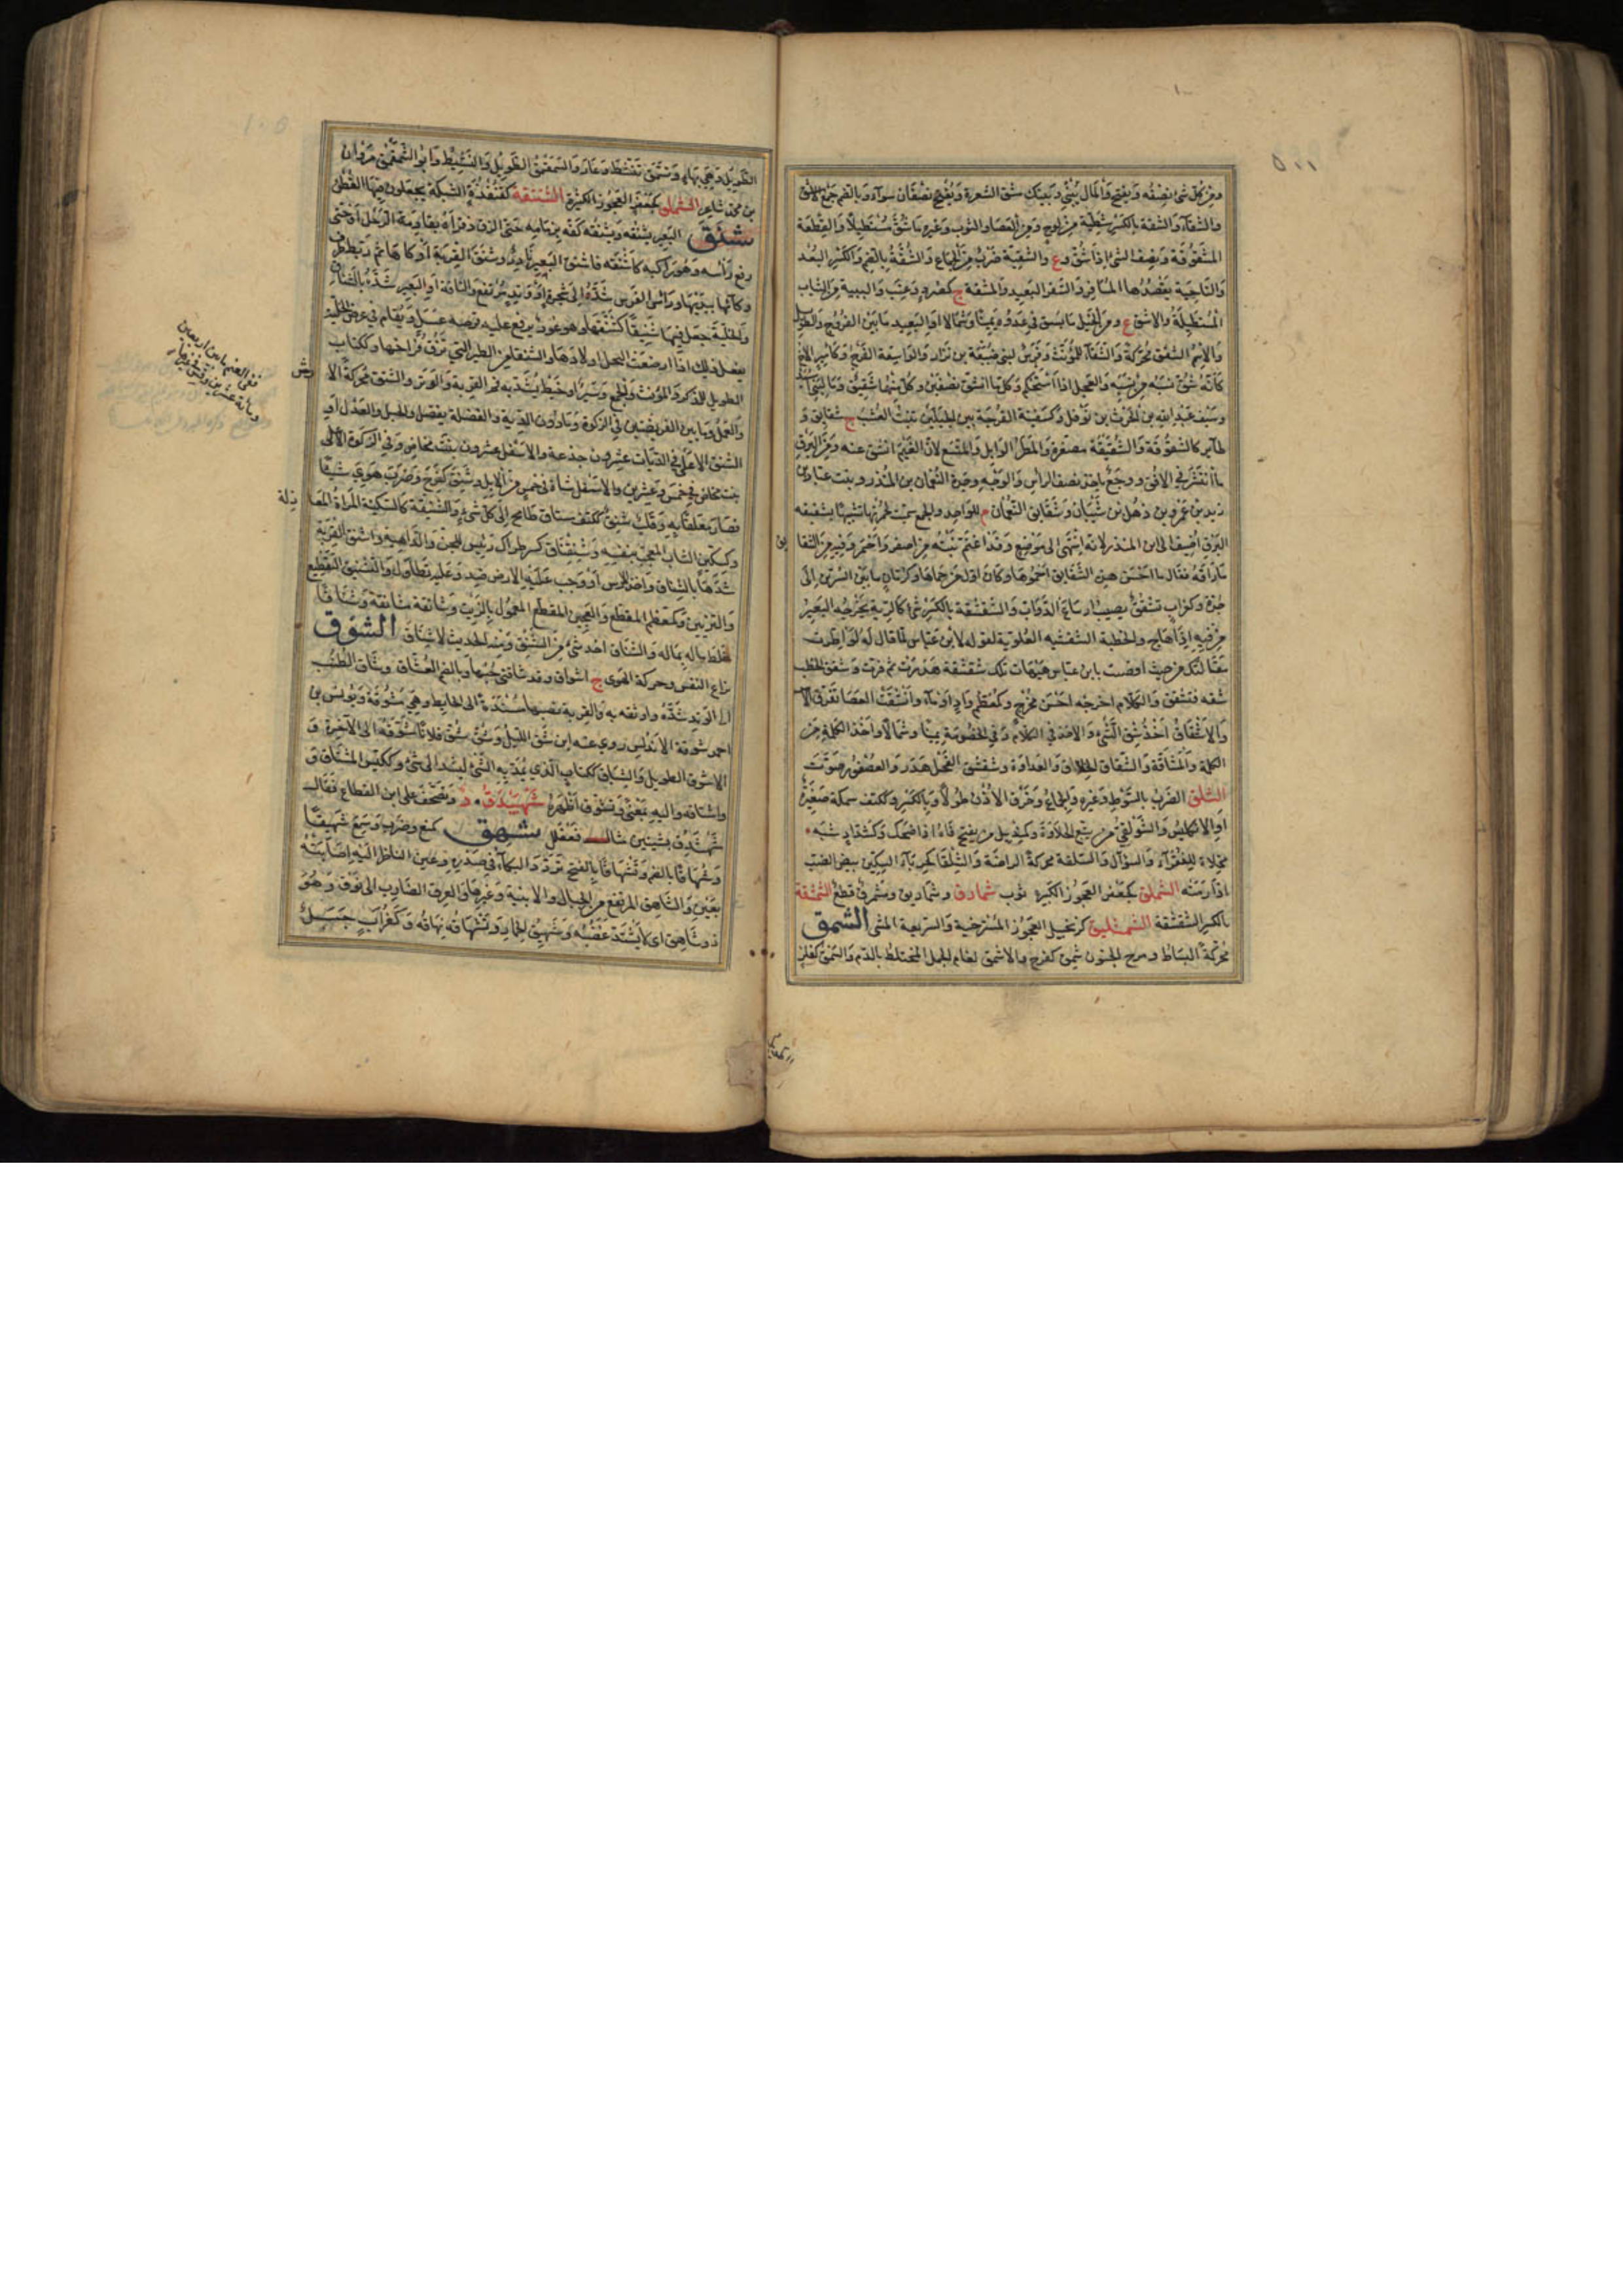 ومن كل شئ نصفه ويفتح والمال بيني وبينك شق الشعرة ويفتح نصفان سواء وبالضم جمع الاشق
والشقاء والشقة بالكسر شظية من لوح ومن العصا والثوب وغيره ما شق مستطيلا والقطعة
المشقوقة ونصف الشئ اذا شق وع والشقة ضرب من الجماع والشقة بالضم والكسر البعد
والناحية يقصدها المسافر والسفر البعيد والمشقة ج كصرد وعنب والسبيبة من الثياب
المستطيلة والاشق ع ومن الخيل ما يشتق في عدوه يمينا وشمالا او البعيد ما بين الفروج والطويل
والاسم الشقق محركة والشقاء للمؤنث وفرس لبني ضبيعة بن نزار والواسعة الفرج وكامير الاخ
كانه شق نسبه من نسبه والعجل اذا استحكم وكل ما انشق نصفين وكل منهما شقيق وماء لبني اسيد
وسيف عبد الله بن الحرث بن نوفل وكسفينة الفرجة بين الحبلين تنبت العشب ج شقايق و
طاير كالشقوقة والشقيقة مصغرة والمطر الوابل والمتسع لان الغيم انشق عنه ومن البرق
ما انتشر في الافق ووجع ياخذ نصف الراس والوجه وجدة النعمان بن المنذر وبنت عباد بن
زيد بن عمرو بن ذهل بن شيبان وشقايق النعمان م للواحد والجمع سميت لحمرتها تشبيها بشقيقة
البرق اضيف الى ابن المنذر لانه انتهى الى موضع وقد اعتم نبته من اصفر واحمر وفيه من الشقا
يق
ما راقه فقال ما احسن هذه الشقايق احموها وكان اول من حماها وكرمان ما بين السرين الى
جدة وكغراب تشقق يصيب ارساغ الدواب والشقشقة بالكسر شئ كالرية يخرجه البعير
من فيه اذا هاج والخطبة الشقشقية العلوية لقوله لابن عباس لما قال له لو اطردت
مقالتك من حيث افضيت يا ابن عباس هيهات تلك شقشقة هدرت ثم قرت وشقق الحطب
شقه فتشقق والكلام اخرجه احسن مخرج وكمعظم واد او ماء وانشقت العصا تفرق الامر
والاشتقاق اخذ شق الشئ والاخذ في الكلام وفي الخصومة يمينا وشمالا واخذ الكلمة من
الكلمة والمشاقة والشقاق الخلاف والعداوة وشقشق الفحل هدر والعصفور صوت
الشلق الضرب بالسوط وغيره والجماع وخرق الاذن طولا وبالكسر وككتف سمكة صغيرة
او الانكليس والشولقي من يتبع الحلاوة وكقنديل من يفتح فاه اذا ضحك وكشداد شبه
مخلاة للفقراء والسؤال والشلقة محركة الراضة والشلقاء كحرباء السكين بيض الضب
اذا رمته الشملق كجعفر العجوز الكبيرة ثوب شمادق وشماديق وشمرق قطع الشمشقة
بالكسر الشقشقة الشمشليق كزنجبيل العجوز المسترخية والسريعة المشي الشمق
محركة النشاط ومرح الجنون شمق كفرح والاشمق لغام الجمل المختلط بالدم والشمق كفلز
الطويل وهي بهاء وتشمق تنشط وغار والشمقمق الطويل والنشيط وابو الشمقمق مروان
بن محمد شاعر الشملق كجعفر العجوز الكبيرة الشنتقة كقنفذة الشبكة يجعلون فيها القطن
شنق البعير يشنقه ويشنقه كفه بزمامه حتى الزق ذفراه بقادمة الرحل او حتى
رفع راسه وهو راكبه كاشنقه فاشنق البعير نادر وشنق القربة اوكاها ثم ربط طرف
وكائها بيديها وراس الفرس شده الى شجرة او وتد مرتفع والناقة او البعير شده بالشناق
والخلية جعل فيها شنيقا كشنقها وهو عود يرفع عليه قرصه عسل ويقام في عرض الخلية
يفعل ذلك اذا ارضعت النحل اولادها والشنقاء من الطير التي تزق فراخها وككتاب
الطويل للذكر والمؤنث والجمع وسيرا وخيط يشد به فم القربة والوتر والشنق محركة الا
رش
والعمل وما بين الفريضتين في الزكوة وما دون الدية والفضلة يفضل والحبل والعدل او
ففي الغنم ما بين اربعين
ومائة وعشرين وقس في غيرها
الشنق الاعلى في الديات عشرون جذعة والاسفل عشرون بنت مخاض وفي الزكوة الاعلى
بنت مخاض في خمس وعشرين والاسفل شاة في خمس من الابل وشنق كفرح وضرب هوي شيئا
فصار معلقا به وقلب شنق ككتف مشتاق طامح الى كل شئ والشنيقة كالسكينة المراة المغا
زلة
وكسكين الشاب المعجب بنفسه وشنقناق كسرطراط رئيس للجن والداهية واشنق القربة
شدها بالشناق واخذ الارش او وجب عليه الارش ضد وعليه تطاول والتشنيق التقطيع
والتزيين وكمعظم المقطع والعجين المقطع المعمول بالزيت وشانقه مشانقة وشناقا
خلط ماله بماله والشناق اخذ شئ من الشنق ومنه الحديث لا شناق الشوق
نزاع النفس وحركة الهوى ج اشواق وقد شاقني حبها وبالضم العشاق وشاق الطنب
الى الوتد شده واوثقه به والقربة نصبها مسندة الى الحايط وهي مشوقة ويونس بن
احمد شوقة الاندلسي روي عنه ابن شق الليل وشق شق فلانا شوقه الى الاخرة و
الاشوق الطويل والشياق ككتاب الذي يمد به الشئ ليشد الى شئ وككيس المشتاق و
واشتاقه واليه بمعنى وتشوق اظهره شهيذق د وتصحف على ابن القطاع فقال
شهشذق بشينين مثال فعفلل شهق كمنع وضرب وسمع شهيقا
وشهاقا بالضم وتشهاقا بالفتح تردد البكاء في صدره وعين الناظر اليه اصابته
بعين والشاهق المرتفع من الجبال والابنية وغيرها والعرق الضارب الى فوق وهو
ذو شاهق اي لا يشتد غضبه وشهيق الحمار وتشهاقه نهاقه وكغراب جبل